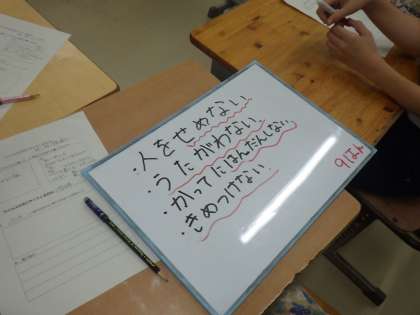 ・人をせめない
・うたがわない
・かってにはんだんしない
・きめつけない
9はん